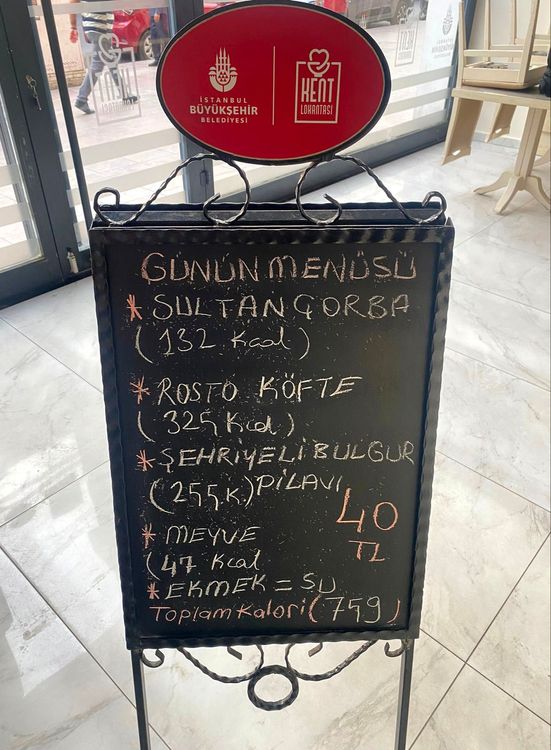 İSTANBUL
BÜYÜKŞEHİR
BELEDİYESİ
KENT
LOKANTASI
GÜNÜN MENÜSÜ
* SULTAN ÇORBA
(132 Kcal)
* ROSTO KÖFTE
(325 Kcal)
* ŞEHRİYELİ BULGUR
(255 K) PİLAVI
40
TL
* MEYVE
(47 Kcal
* EKMEK = SU
Toplam Kalori (759)